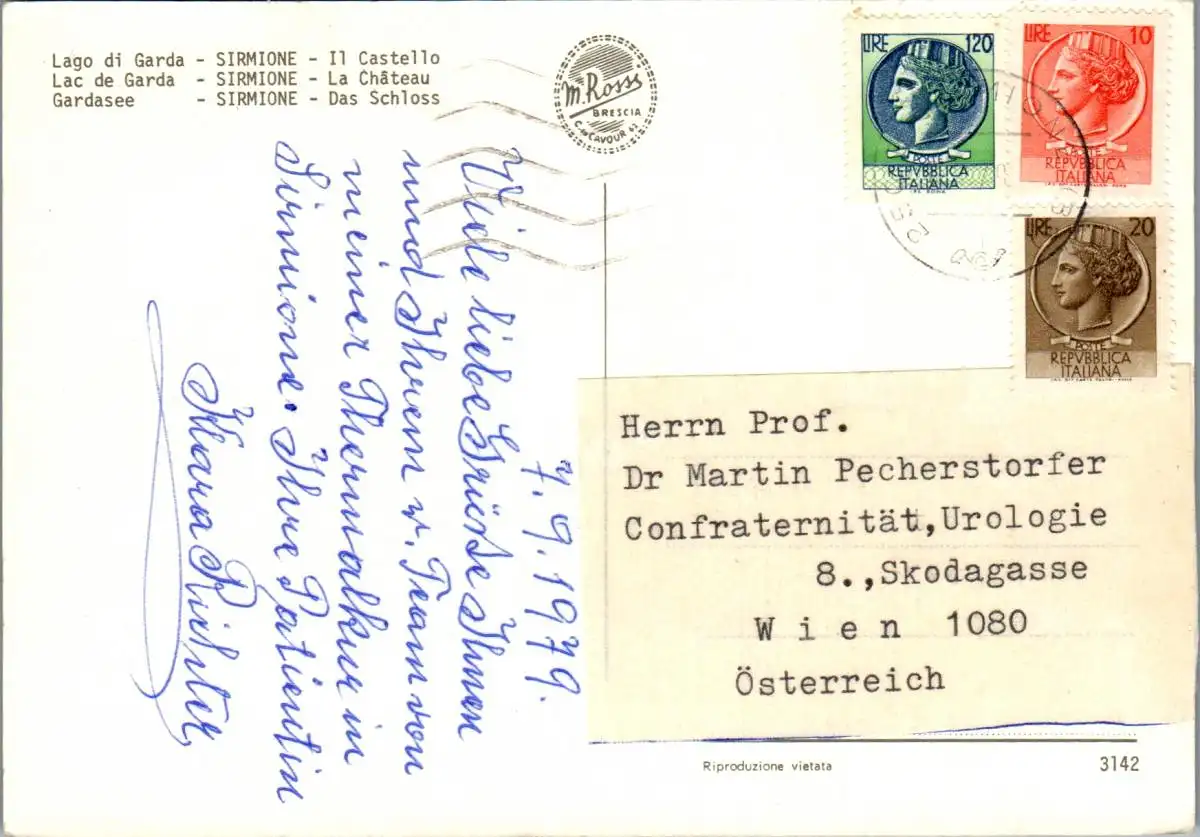 Lago di Garda - SIRMIONE - Il Castello
Lac de Garda - SIRMIONE - La Château
Gardasee - SIRMIONE - Das Schloss
m. Rossi
BRESCIA
C. so CAVOUR 62
LIRE 120
POSTE
REPVBBLICA
ITALIANA
I.P.S. ROMA
LIRE 10
POSTE
REPVBBLICA
ITALIANA
LIRE 20
POSTE
REPVBBLICA
ITALIANA
7.9.1979.
Viele liebe Grüße Ihnen
und Ihrem w. Team von
meiner Thermalkur in
Sirmione. Ihre Patientin
Klara Richter
Herrn Prof.
Dr Martin Pecherstorfer
Confraternität,Urologie
8.,Skodagasse
W i e n 1080
Österreich
Riproduzione vietata
3142